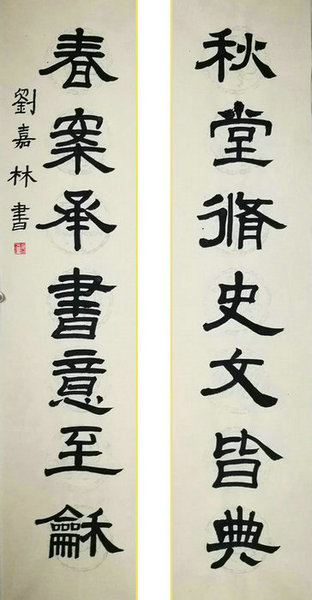 秋堂脩史文皆典
春案承書意至龢
劉嘉林書